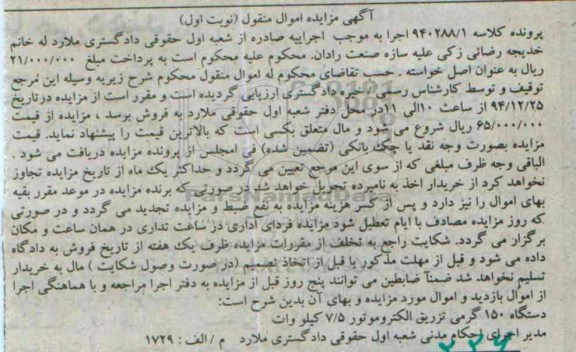 آگهی مزایده اموال منقول (نوبت اول)
پرونده کلاسه ۹۴۰۲۸۸/۱ اجرا به موجب اجراییه صادره از شعبه اول حقوقی دادگستری ملارد له خانم
خدیجه رضائی زکی علیه سازه صنعت رادان. محکوم علیه محکوم است به پرداخت مبلغ ۲۱/۰۰۰/۰۰۰
ریال به عنوان اصل خواسته . حسب تقاضای محکوم له اموال منقول محکوم شرح زیربه وسیله این مرجع
توقیف و توسط کارشناس رسمی دادگستری ارزیابی گردیده است و مقرر است از مزایده درتاریخ
۹۴/۱۲/۲۵ از ساعت ۱۰الی ۱۱در محل دفتر شعبه اول حقوقی ملارد به فروش برسد ، مزایده از قیمت
۶۵/۰۰۰/۰۰۰ ریال شروع می شود و مال متعلق بکسی است که بالاترین قیمت را پیشنهاد نماید. قیمت
مزایده بصورت وجه نقد یا چک بانکی (تضمین شده) فی المجلس از برنده مزایده دریافت می شود .
الباقی وجه ظرف مبلغی که از سوی این مرجع تعیین می گردد و حداکثر یک ماه از تاریخ مزایده تجاوز
نخواهد کرد از خریدار اخذ به نامبرده تحویل خواهد شد درصورتی که برنده مزایده در موعد مقرر بقیه
بهای اموال را نیز دارد و پس از کسر هزینه مزایده به نفع ضبط و مزایده تجدید می گردد و در صورتی
که روز مزایده مصادف با ایام تعطیل شود مزایده فردای اداری در ساعت تداری در همان ساعت و مکان
برگزار می گردد. شکایت راجع به تخلف از مقررات مزایده ظرف یک هفته از تاریخ فروش به دادگاه
داده می شود و قبل از مهلت مذکور یا قبل از اتخاذ تصمیم (در صورت وصول شکایت ) مال به خریدار
تسلیم نخواهد شد ضمناً ضابطین می توانند پنج روز قبل از مزایده به دفتر اجرا مراجعه و با هماهنگی اجرا
از اموال بازدید و اموال مورد مزایده و بهای آن بدین شرح است:
دستگاه ۱۵۰ گرمی تزریق الکتروموتور ۷/۵ کیلو وات
مدیر اجرای احکام مدنی شعبه اول حقوقی دادگستری ملارد م / الف : ۱۷۲۹